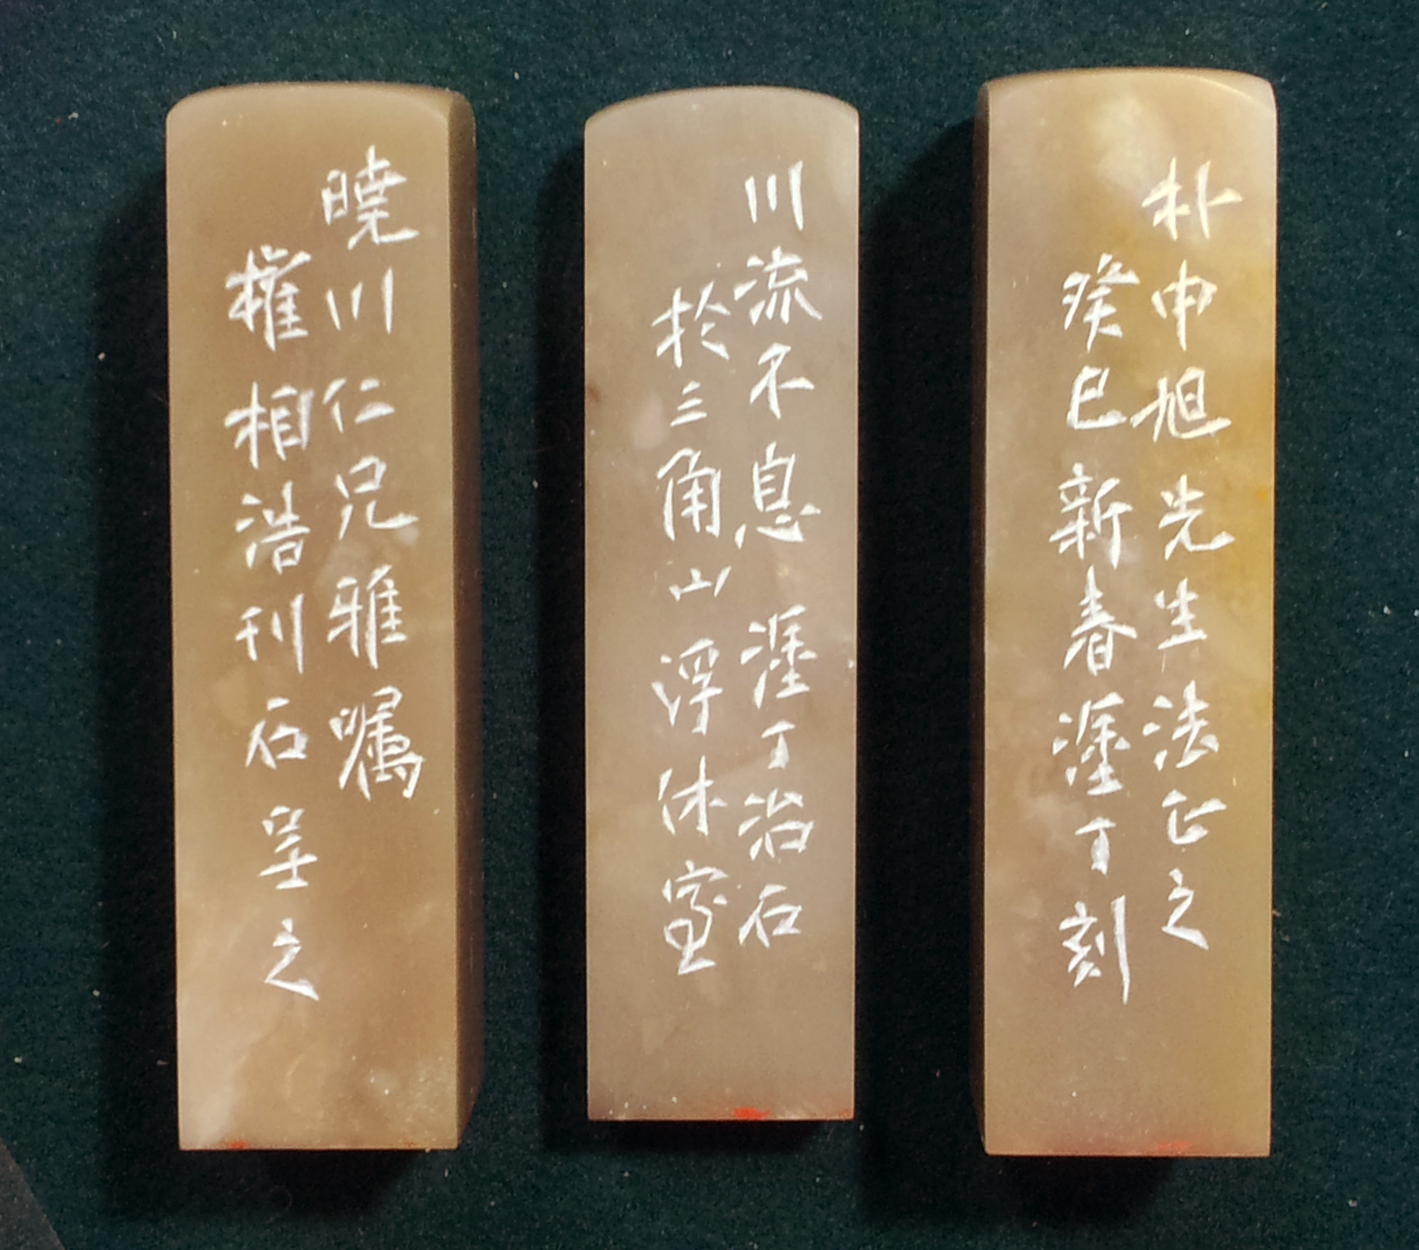 朴申旭先生法正之
癸巳新春塗丁刻
川流不息 塗丁治石
於三角山浮休室
曉川仁兄雅囑
權相浩刊石呈之